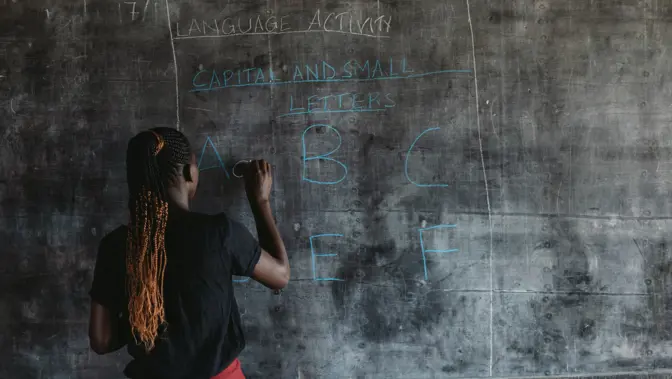 17/1
LANGUAGE ACTIVITY
CAPITAL AND SMALL
LETTERS
A a B C
E F